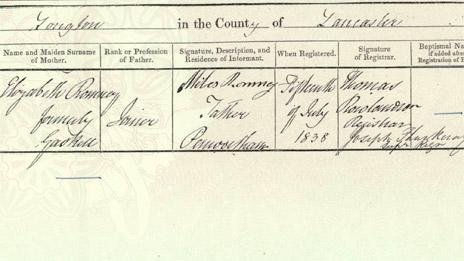 Longton in the County of Lancaster
Name and Maiden Surname of Mother.
Rank or Profession of Father.
Signature, Description, and Residence of Informant.
When Registered.
Signature of Registrar.
Baptismal Na
if added after
Registration of B
Elizabeth Romney
formerly
Gaskell
Joiner
Miles Romney
Father
Penwortham
Fifteenth
of July
1838
Thomas
Rowlandson
Registrar
Joseph Thackeray